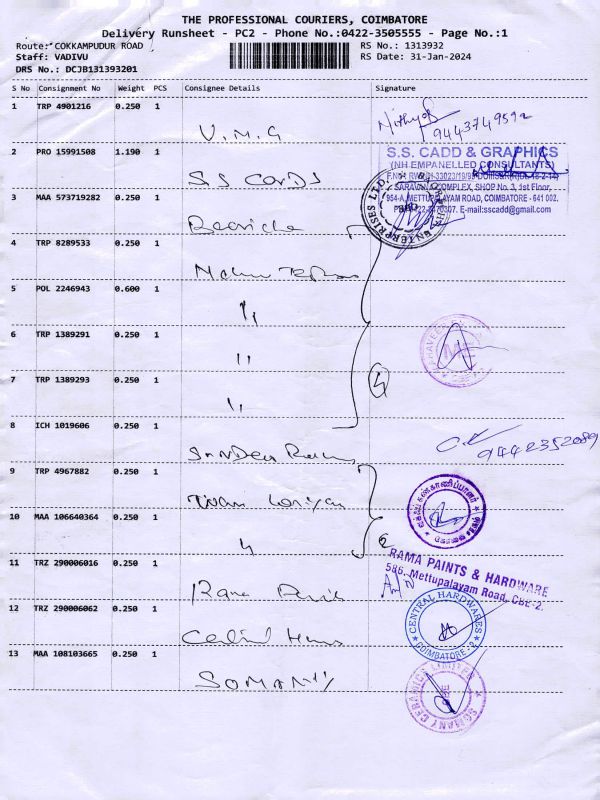 THE PROFESSIONAL COURIERS, COIMBATORE
Delivery Runsheet - PC2 - Phone No.:0422-3505555 - Page No.:1
Route: COKKAMPUDUR ROAD
RS No.: 1313932
Staff: VADIVU
RS Date: 31-Jan-2024
DRS No.: DCJB131393201
S No Consignment No Weight PCS Consignee Details Signature
1 TRP 4901216 0.250 1
V.M.G
9443749592
2 PRO 15991508 1.190 1
S.S CARDS
S.S. CADD & GRAPHICS
(NH EMPANELLED CONSULTANTS)
SARAVANA COMPLEX, SHOP No. 3, 1st Floor,
954-A, METTUPALAYAM ROAD, COIMBATORE - 641 002.
E-mail:sscadd@gmail.com
3 MAA 573719282 0.250 1
ENTERPRISES LTD.
4 TRP 8289533 0.250 1
5 POL 2246943 0.600 1
"
6 TRP 1389291 0.250 1
"
7 TRP 1389293 0.250 1
"
4
8 ICH 1019606 0.250 1
9442352089
9 TRP 4967882 0.250 1
10 MAA 106640364 0.250 1
"
2
11 TRZ 290006016 0.250 1
RAMA PAINTS & HARDWARE
586, Mettupalayam Road, CBE-2.
12 TRZ 290006062 0.250 1
CENTRAL HARDWARES
COIMBATORE - 2
13 MAA 108103665 0.250 1
SOMANY
SOMANY CERAMICS LIMITED